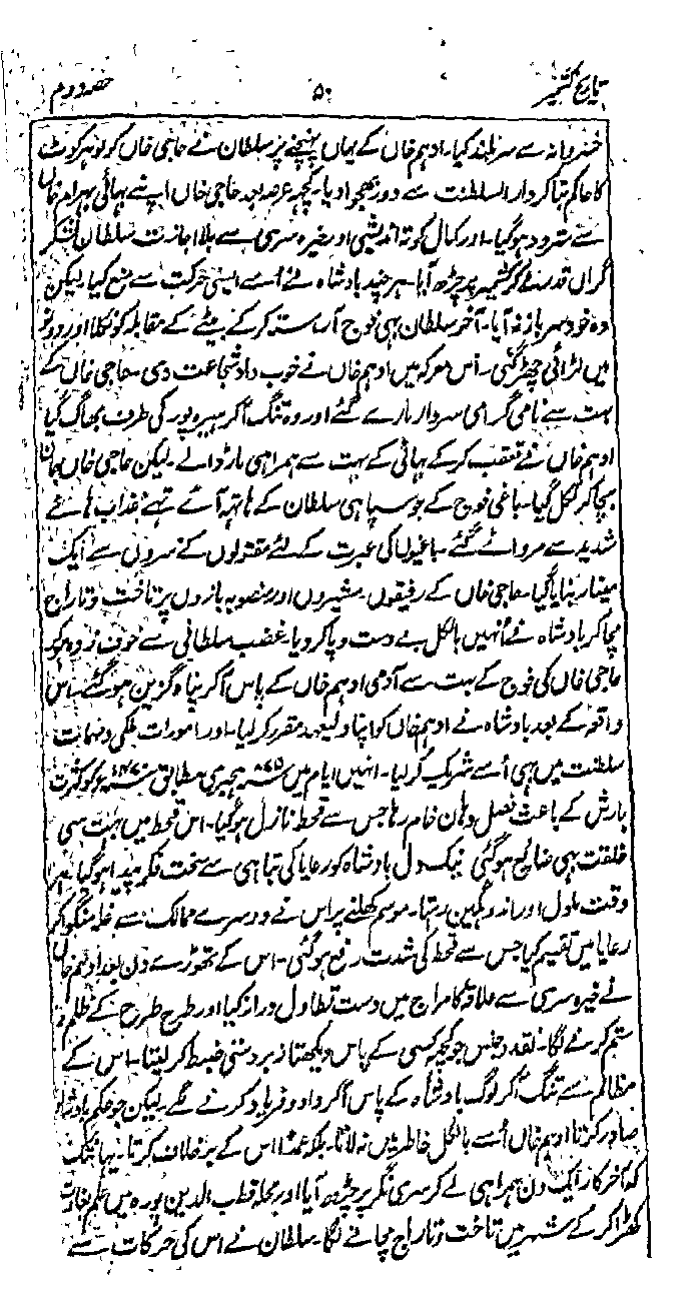 تاریخ کشمیر ۵۰ حصہ دوم
خسروانہ سے سربلند کیا۔ ادہم خاں کے یہاں پہنچنے پر سلطان نے حاجی خاں کو لوہر کوٹ
کا حاکم بنا کر دارالسلطنت سے دور بھجوا دیا۔ کچہہ عرصہ بعد حاجی خاں اپنے بہائی بہرام خاں
سے ہوگیا۔ اور کمال کوتہ اندیشی اور خیرہ سری سے بلا اجازت سلطان لشکر
گراں قدر لے کر کشمیر پر چڑھ آیا۔ ہر چند بادشاہ نے اُسے ایسی حرکت سے منع کیا لیکن
وہ خود سر باز نہ آیا۔ آخر سلطان بہی فوج آراستہ کر کے بیٹے کے مقابلہ کو نکلا اور دونو
میں لڑائی چھڑ گئی۔ اس معرکہ میں ادہم خاں نے خوب داد شجاعت دی۔ حاجی خاں کے
بہت سے نامی گرامی سردار مارے گئے اور وہ تنگ آکر ہیرہ پور کی طرف بھاگ گیا
ادہم خاں نے تعقب کر کے بہائی کے بہت سے ہمراہی مار ڈالے۔ لیکن حاجی خاں جان
بچا کر نکل گیا۔ باغی فوج کے جو سپاہی سلطان کے ہاتہہ آئے تہے عذاب ہائے
شدید سے مروائے گئے۔ باغیوں کی عبرت کے لئے مقتولوں کے سروں سے ایک
مینار بنایا گیا۔ حاجی خاں کے رفیقوں۔ مشیروں اور منصوبہ بازوں پر تاخت و تاراج
مچا کر بادشاہ نے اُنہیں بالکل بے دست و پا کر دیا۔ غضب سلطانی سے خوف زدہ ہو کر
حاجی خاں کی فوج کے بہت سے آدمی ادہم خاں کے پاس آکر پناہ گزین ہوگئے۔ اس
واقعہ کے بعد بادشاہ نے ادہم خاں کو اپنا ولیعہد مقرر کر لیا۔ اور امورات ملکی و مہمات
سلطنت میں بہی اُسے شریک کر لیا۔ انہیں ایام میں ہجری مطابق کو کثرت
بارش کے باعث فصل دہان خام رہا جس سے قحط نازل ہوگیا۔ اس قحط میں بہت سی
خلقت بہی ضائع ہوگئی نیک دل بادشاہ کو رعایا کی تباہی سے سخت فکر پیدا ہوگیا ہر
وقت ملول اور اندوہگین رہتا۔ موسم کھلنے پر اس نے دوسرے ممالک سے غلہ منگوا کر
رعایا میں تقسیم کیا جس سے قحط کی شدت رفع ہوگئی۔ اس کے تھوڑے دن بعد ادہم خاں
نے خیرہ سری سے علاقہ کامراج میں دست تطاول دراز کیا اور طرح طرح کے ظلم و
ستم کرنے لگا۔ نقد و جنس جو کچہہ کسی کے پاس دیکھتا زبردستی ضبط کر لیتا۔ اس کے
مظالم سے تنگ آکر لوگ بادشاہ کے پاس آکر داد و فریاد کرنے لگے۔ لیکن جو حکم بادشاہ
صادر کرتا ادہم خاں اُسے بالکل خاطر میں نہ لاتا۔ بلکہ عمداً اس کے برخلاف کرتا۔ یہانتک
کہ آخر کار ایک دن ہمراہی لے کر سری نگر پر چڑھ آیا اور محلہ قطب الدین پورہ میں علم بغاوت
کھڑا کر کے شہر میں تاخت و تاراج مچانے لگا۔ سلطان نے اس کی حرکات سے